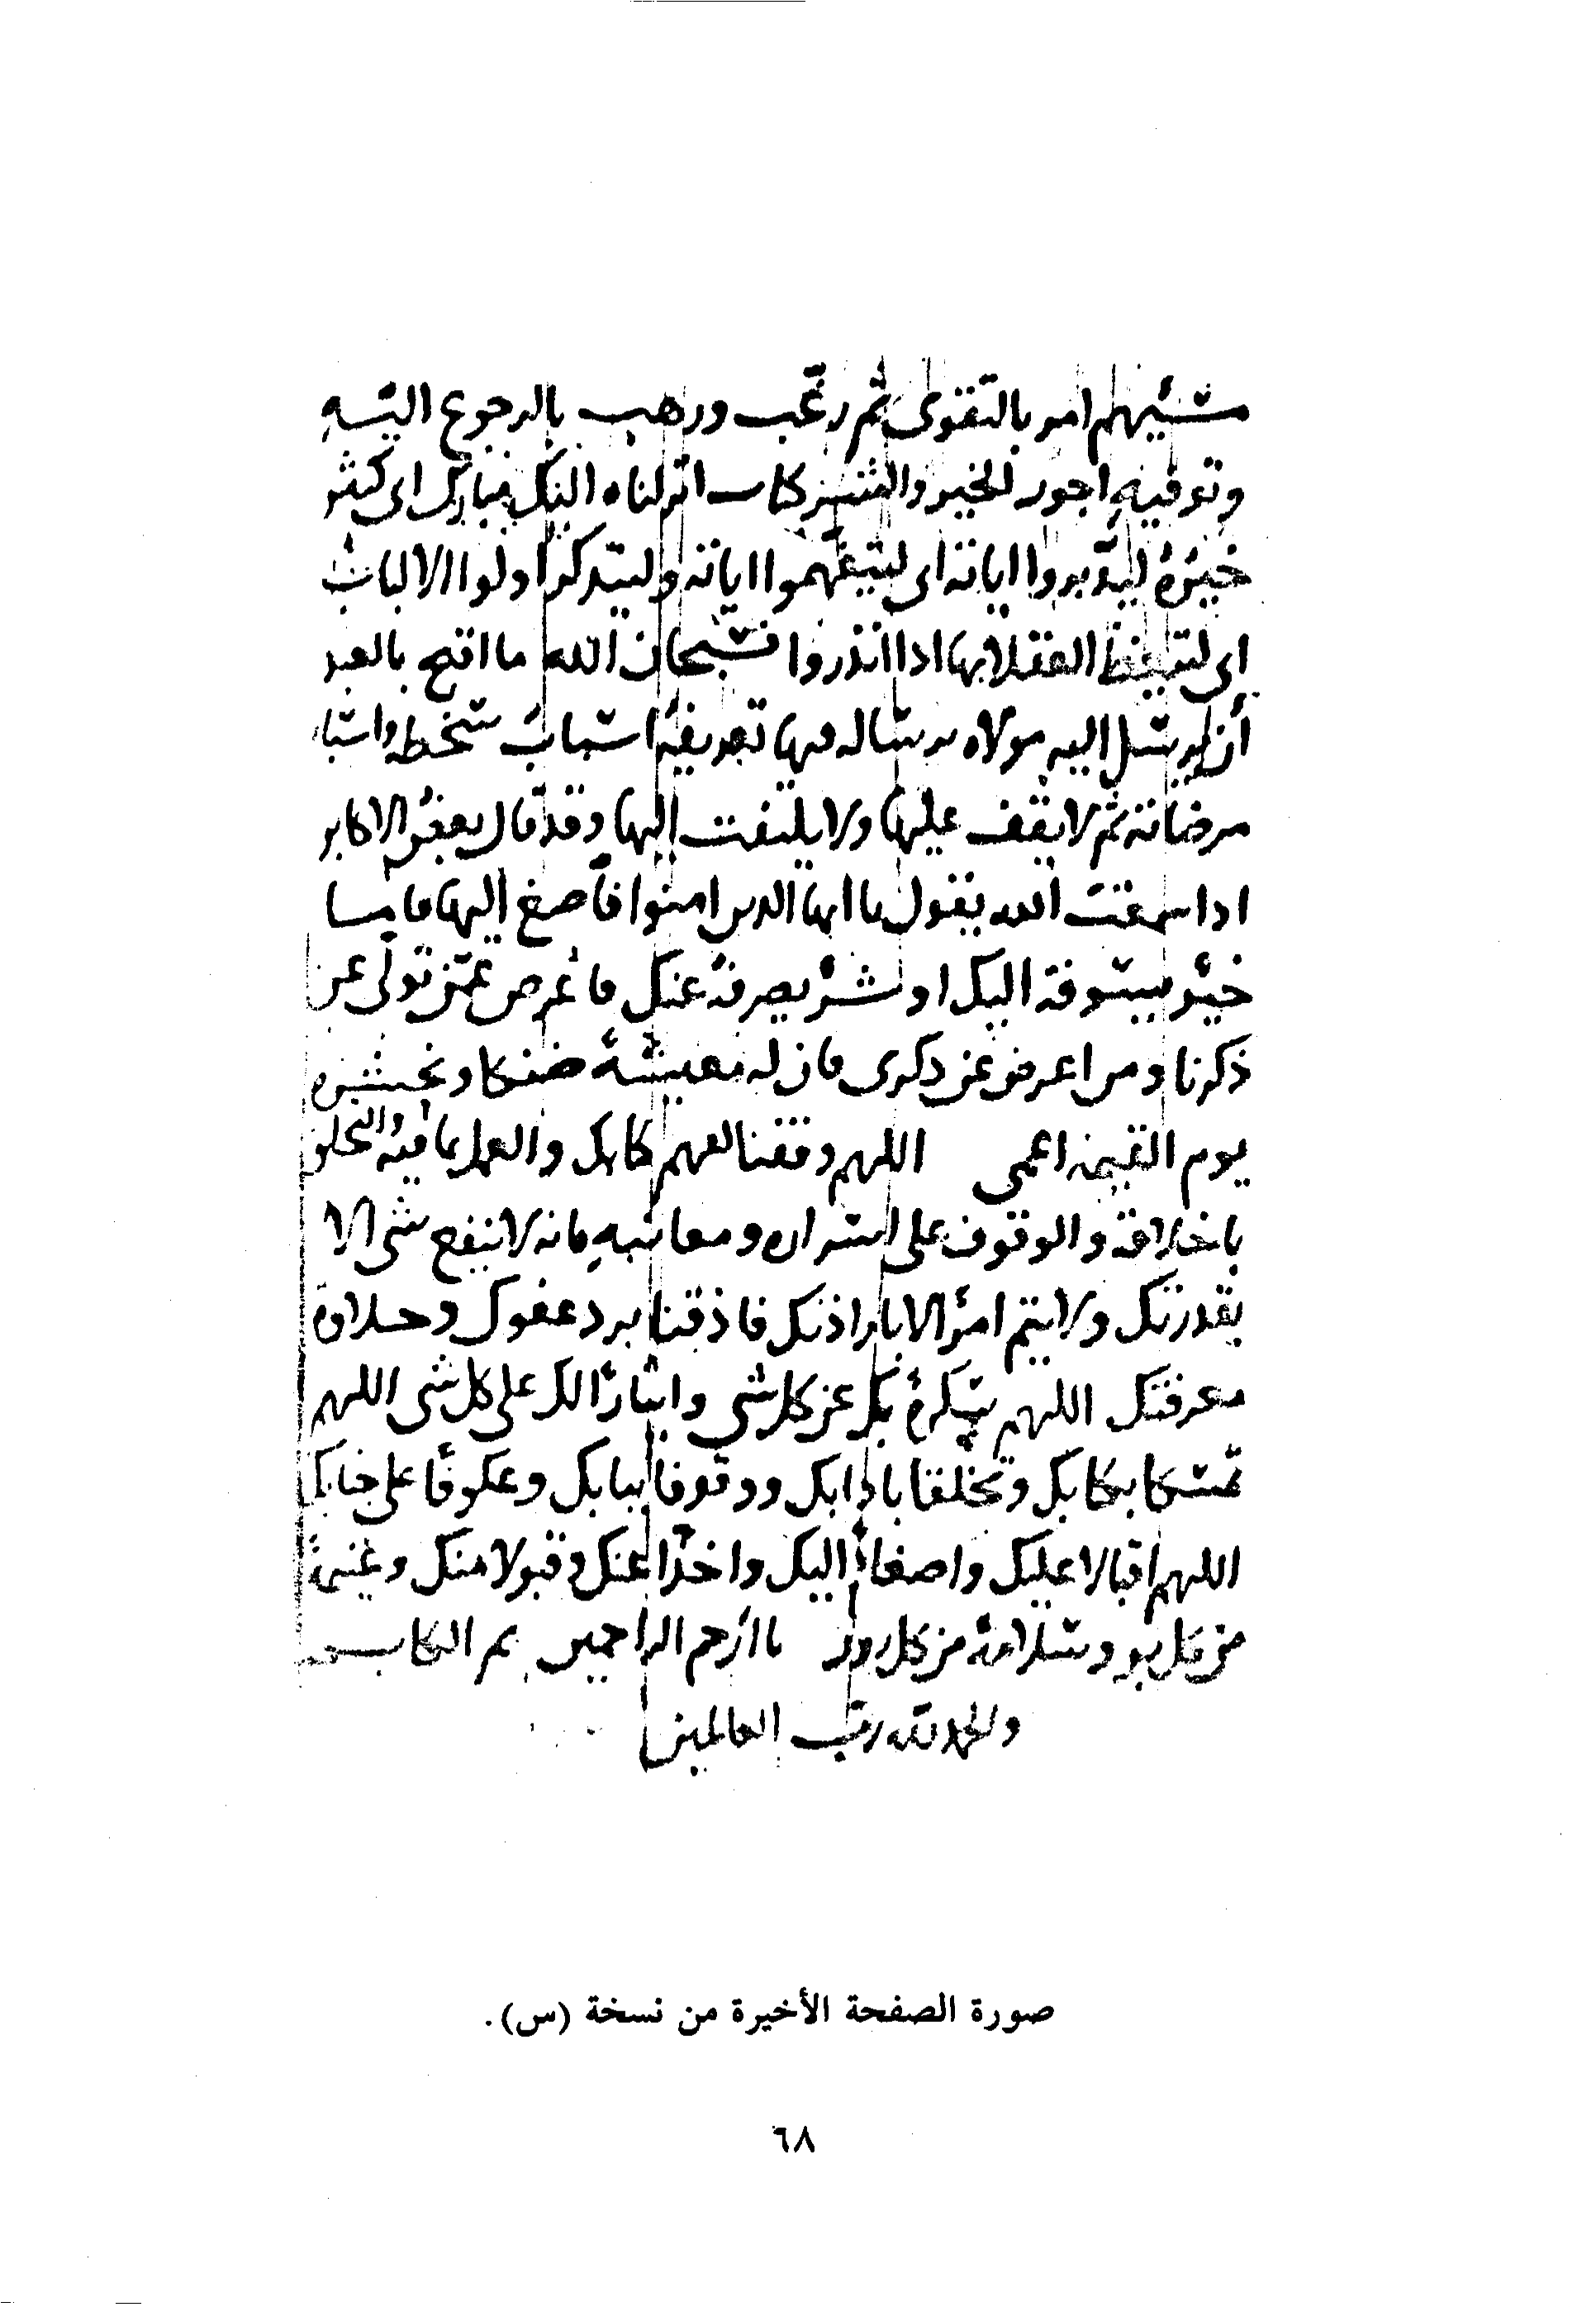 مسيئهم امر بالتقوى ثم رغب ورهب بالرجوع اليه
وتوفيه اجور الخير والشر كتاب انزلناه اليك مبارك اى كثير
خيره ليدبروا اياته اى ليتفهموا اياته وليتذكر اولوا الالباب
اى ليتعظ العقلا بها اذا انذروا فسبحان الله ما اقبح بالعبد
أن يرسل اليه مولاه برسالة فيها تعريفه اسباب سخطه واسباب
مرضاته ثم لا يقف عليها ولا يلتفت إليها وقد قال بعض الاكابر
اذا سمعت الله يقول ياايها الذين امنوا فأصغ إليها فانها
خير يسوقه اليك او شر يصرفه عنك فأعرض عمن تولى عن
ذكرنا ومن اعرض عن ذكرى فان له معيشة ضنكا ونحشره
يوم القيمة اعمى اللهم وفقنا لفهم كتابك والعمل بما فيه والتخلق
باخلاقه والوقوف على اسراره ومعانيه فانه لا ينفع شى الا
بقدرتك ولا يتم امر الا باذنك فاذقنا برد عفوك وحلاوة
معرفتك اللهم بك عن كل شى وايثارا لك على كل شى اللهم
تمسكا بكتابك وتخلقا بادابك ووقوفا ببابك وعكوفا على جنابك
اللهم اقبالا عليك واصغاءً اليك واخذا عنك وقبولا منك وغنيمة
من كل بر وسلامة من كل ياارحم الراحمين تم الكتاب
والحمد لله رب العالمين
صورة الصفحة الأخيرة من نسخة (س).
٦٨